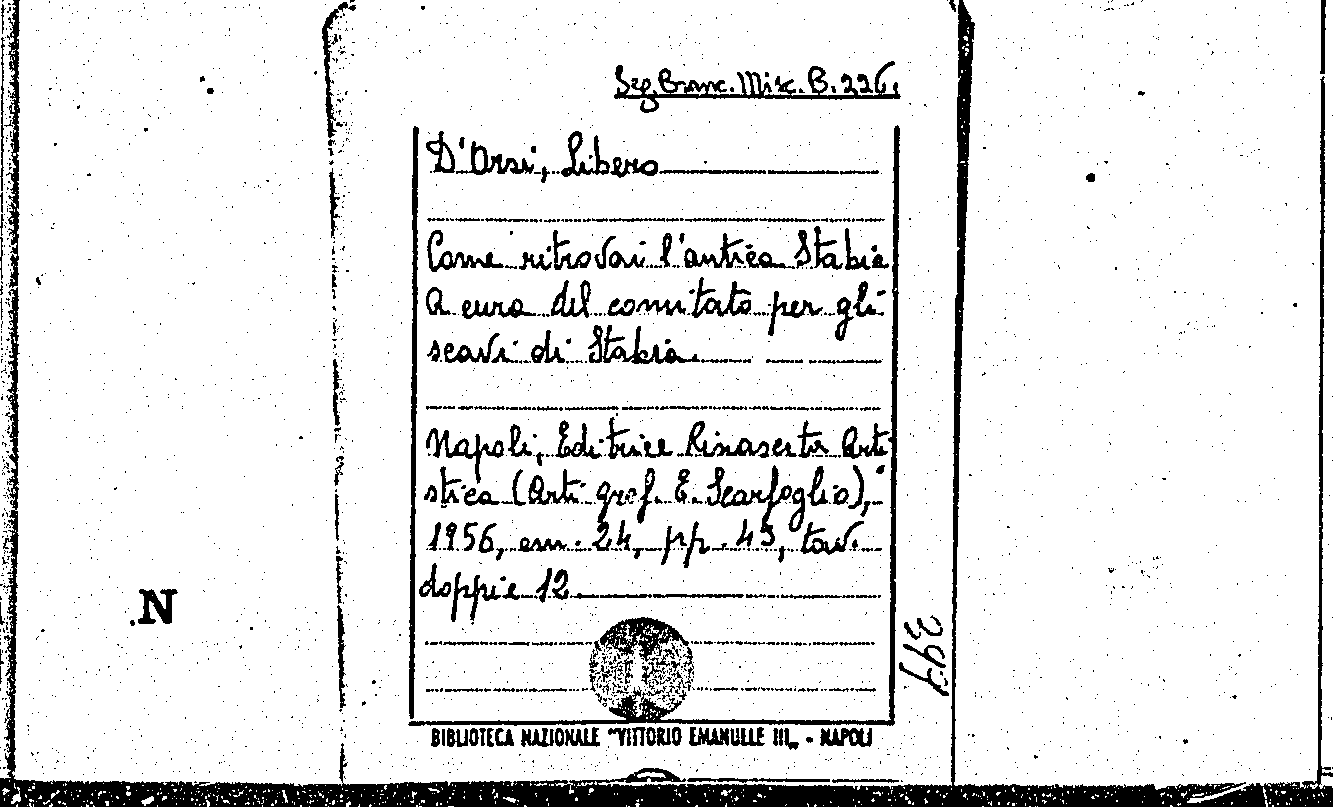 Seg. Branc. Misc. B. 226.
D'Orsi, Libero
Come ritrovai l'antica Stabia
A cura del comitato per gli
scavi di Stabia.
Napoli, Editrice Rinascita Arti-
stica (Arti graf. E. Scarfoglio),
1956, cm. 24, pp. 45, tav.
doppie 12.
N
BIBLIOTECA NAZIONALE "VITTORIO EMANUELE III„ - NAPOLI